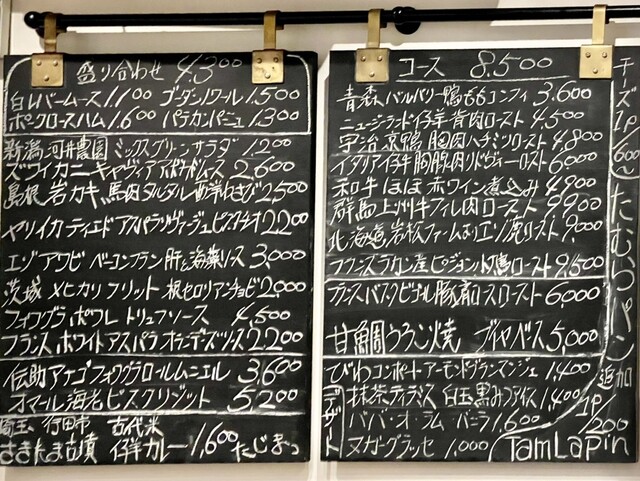 盛り合わせ 4,300
白レバームース 1,100 ブーダンノワール 1,500
ポークロースハム 1,600 パテカンパーニュ 1,300
新潟 河井農園 ミックスグリーンサラダ 1,200
ズワイカニ キャヴィア アボカドムース 2,600
島根 岩カキ 馬肉タルタル 西洋わさび 2,500
ヤリイカ ティエド アスパラソヴァージュ ピスタチオ 2,200
エゾアワビ ベーコンフラン 肝と海藻ソース 3,000
茨城 メヒカリフリット 根セロリ アンチョビ 2,000
フォワグラポワレ トリュフソース 4,500
フランス ホワイトアスパラ オランデーズソース 2,200
伝助アナゴ フォワグラロール ムニエル 3,600
オマール海老 ビスクリゾット 5,200
埼玉 行田市 古代米
さきたま古墳 仔羊カレー 1,600 たじまっ
コース 8,500
青森 バルバリー鴨ももコンフィ 3,600
ニュージーランド仔羊背肉ロースト 4,500
宇治 京鴨 胸肉ハチミツロースト 4,800
イタリア仔牛胸腺肉リドヴォーロースト 6,000
和牛ほほ赤ワイン煮込み 4,900
群馬上州牛フィレ肉ロースト 9,900
北海道岩松ファーム エゾ鹿ロースト 9,000
フランスラカン産ピジョン小鳩ロースト 9,500
フランスバスクビゴール豚肩ロースロースト 6,000
甘鯛うろこ焼 ブイヤベース 5,000
デザート
びわコンポート アーモンドブランマンジェ 1,400
抹茶ティラミス 白玉黒みつアイス 1,400
ババ・オ・ラム・バニラ 1,600
ヌガーグラッセ 1,000
チーズ1P 600〜
追加 1P 200
たむらパン
TamLapin